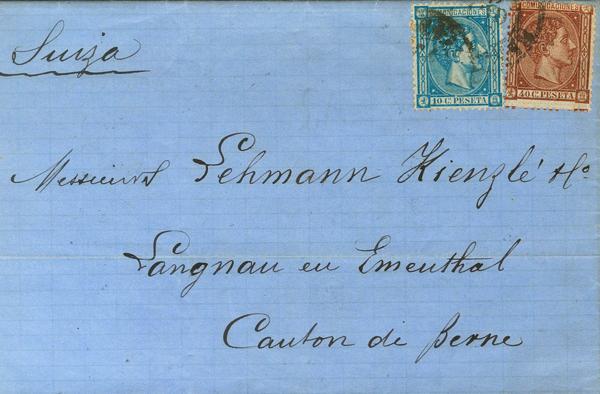 COMUNICACIONES
10 Cs PESETA
COMUNICACIONES
40 Cs PESETA
Suiza
Messieurs Lehmann Kienzlé & Co
Langnau en Ementhal
Canton de Berne